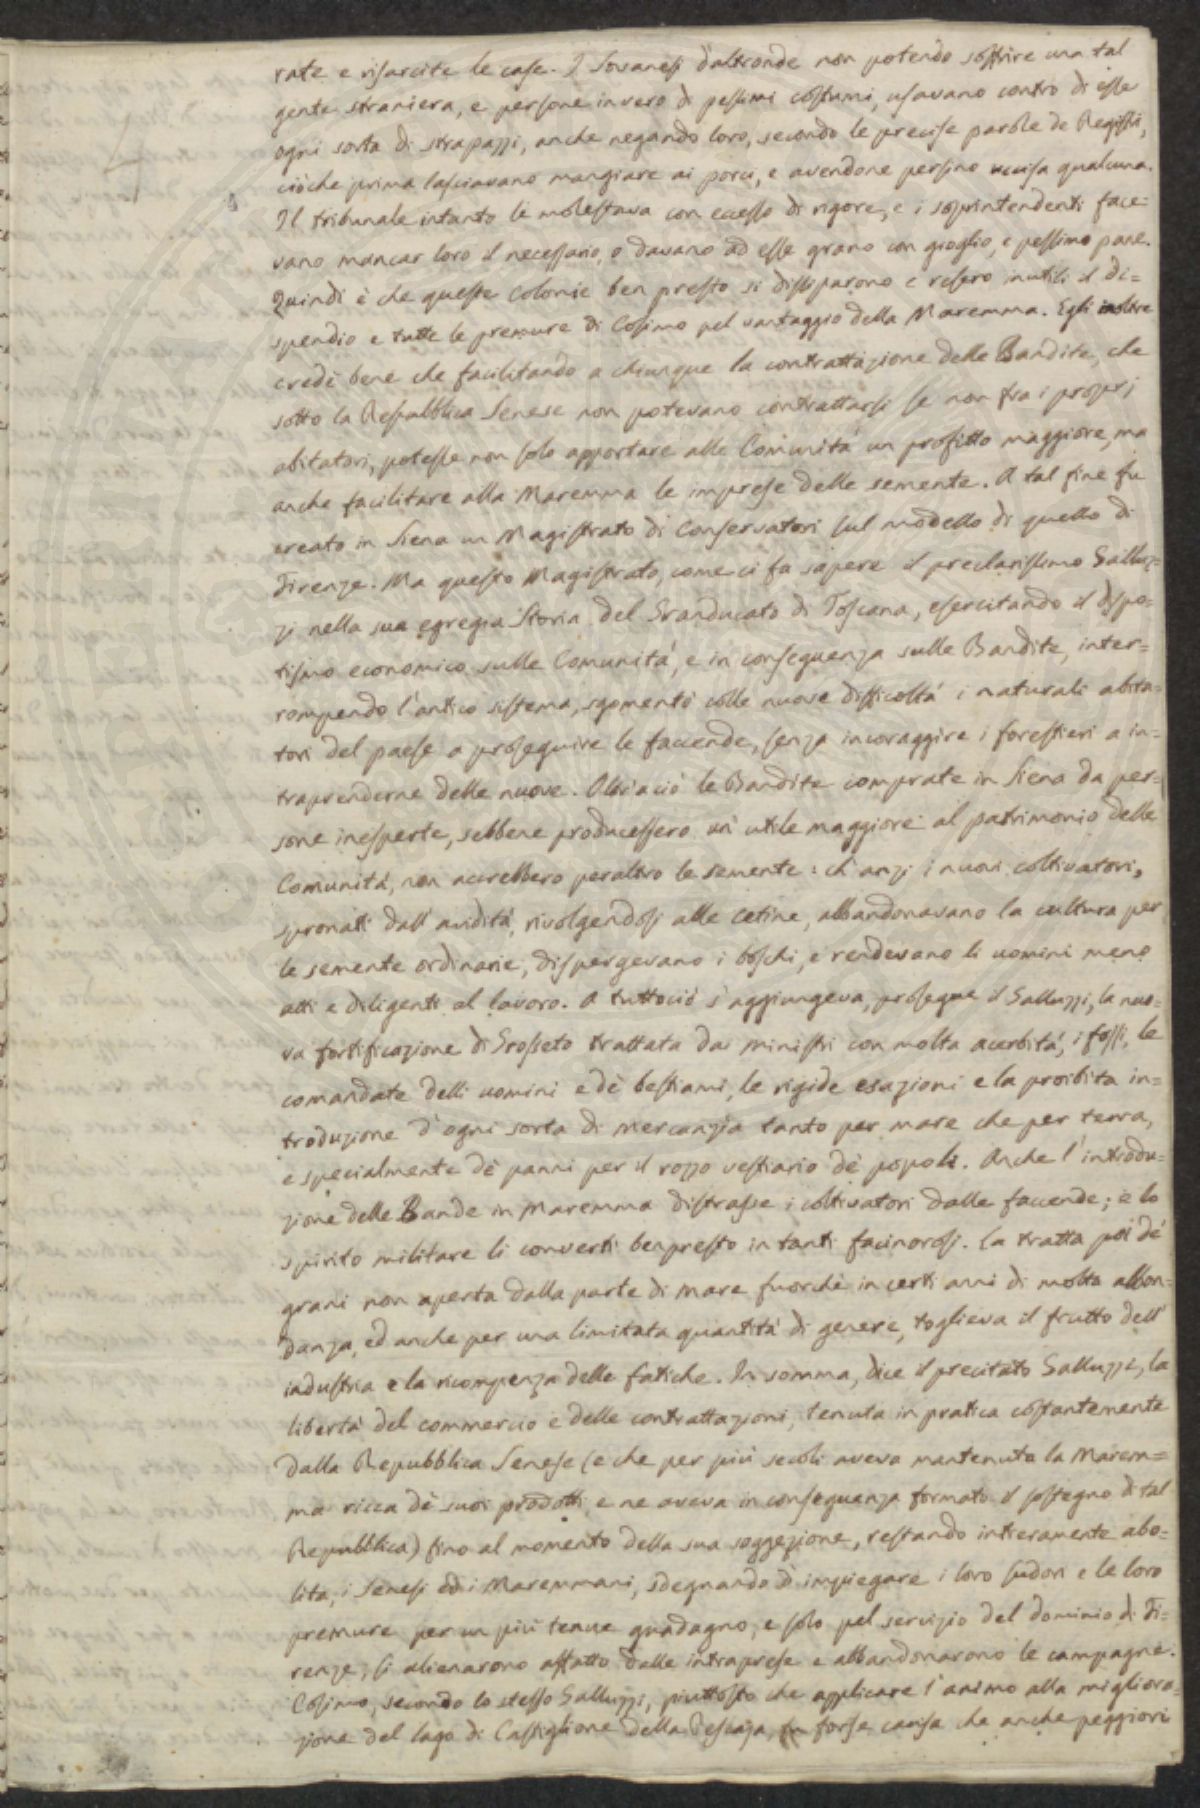 rate e risarcite le case. I Sovanesi d'altronde non potendo soffrire una tal
gente straniera, e persone invero di pessimi costumi, usavano contro di esse
ogni sorta di strapazzi, anche negando loro, secondo le precise parole de Registri,
ciòche prima lasciavano mangiare ai porci, e avendone persino uccisa qualcuna.
Il tribunale intanto le molestava con eccesso di rigore, e i soprintendenti face=
vano mancar loro il necessario, o davano ad esse grano con gioglio, e pessimo pane.
Quindi è che queste Colonie ben presto si dissiparono e resero inutili il di=
spendio e tutte le premure di Cosimo pel vantaggio della Maremma. Egli inoltre
credè bene che facilitando a chiunque la contrattazione delle Bandite, che
sotto la Repubblica Senese non potevano contrattarsi se non fra i proprj
abitatori, potesse non solo apportare alle Comunità un profitto maggiore, ma
anche facilitare alla Maremma le imprese delle semente. A tal fine fu
creato in Siena un Magistrato di Conservatori sul modello di quello di
Firenze. Ma questo Magistrato, come ci fa sapere il preclarissimo Galluz=
zi nella sua egregia Storia del Granducato di Toscana, esercitando il dispo=
tismo economico sulle Comunità, e in conseguenza sulle Bandite, inter=
rompendo l'antico sistema, sgomentò colle nuove difficoltà i naturali abita=
tori del paese a proseguire le faccende, senza incoraggire i forestieri a in=
traprenderne delle nuove. Oltr'acciò le Bandite comprate in Siena da per=
sone inesperte, sebbene producessero un utile maggiore al patrimonio delle
Comunità, non accrebbero peraltro le semente: ch'anzi i nuovi coltivatori,
spronati dall'avidità, rivolgendosi alle cetine, abbandonavano la cultura per
le semente ordinarie, dispergevano i boschi, e rendevano li uomini meno
atti e diligenti al lavoro. A tuttociò s'aggiungeva, prosegue il Galluzzi, la nuo=
va fortificazione di Grosseto trattata dai ministri con molta acerbità, i fossi, le
comandate delli uomini e dè bestiami, le rigide esazioni e la proibita in=
troduzione d'ogni sorta di mercanzia tanto per mare che per terra,
e specialmente dè panni per il rozzo vestiario dè popoli. Anche l'introdu=
zione delle Bande in Maremma distrasse i coltivatori dalle faccende; e lo
spirito militare li convertì benpresto in tanti facinorosi. La tratta poi dè
grani non aperta dalla parte di mare fuorchè in certi anni di molta abbon=
danza, ed anche per una limitata quantità di genere, toglieva il frutto dell'
industria e la ricompenza delle fatiche. In somma, dice il precitato Galluzzi, la
libertà del commercio e delle contrattazioni, tenuta in pratica costantemente
dalla Repubblica Senese (e che per più secoli aveva mantenuta la Marem=
ma ricca dè suoi prodotti, e ne aveva in conseguenza formato il sostegno di tal
Repubblica) fino al momento della sua soggezione, restando intieramente abo=
lita, i Senesi ed i Maremmani, sdegnando d'impiegare i loro sudori e le loro
premure per un più tenue guadagno, e solo pel servizio del dominio di Fi=
renze, si alienarono affatto dalle intraprese e abbandonarono le campagne.
Cosimo, secondo lo stesso Galluzzi, piuttosto che applicare l'animo alla migliora=
zione del lago di Castiglione della Pescaja, fu forse causa che anche peggiori